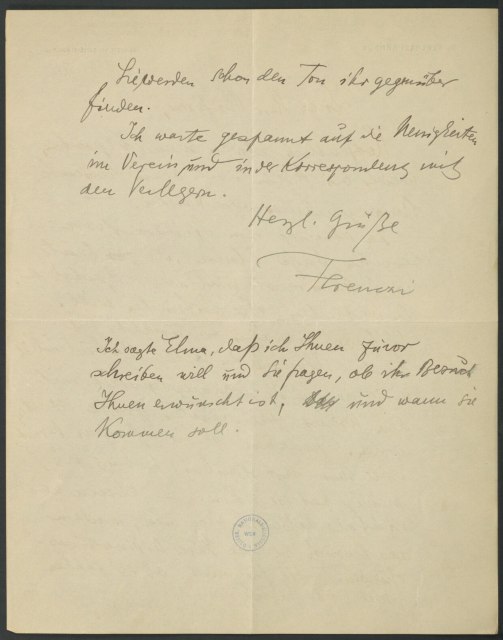 Sie werden schon den Ton ihr gegenüber
finden.
Ich warte gespannt auf die Neuigkeiten
im Verein und in der Korrespondenz mit
den Verlegern.
Herzl. Grüße
Ferenczi
Ich sagte Elma, daß ich Ihnen zuvor
schreiben will und Sie fragen, ob ihr Besuch
Ihnen erwünscht ist, und wann sie
kommen soll.